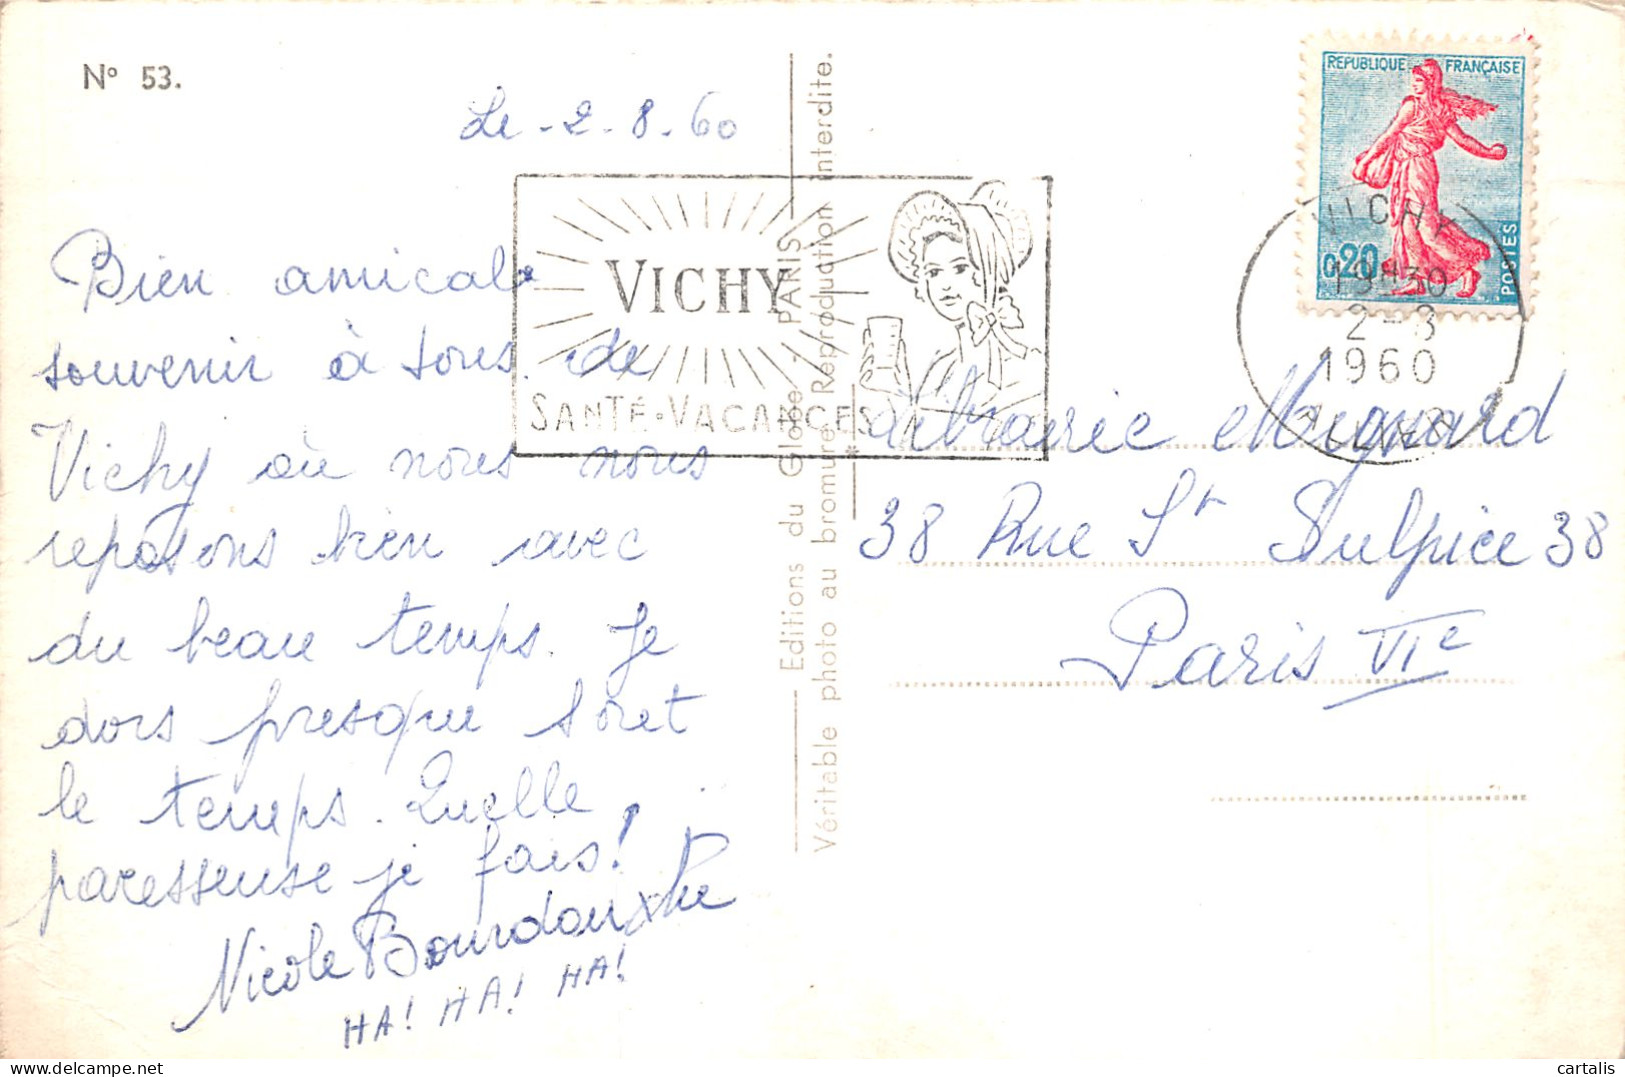 N° 53.
Le - 2 - 8 - 60
Bien amical
souvenir à tous de
Vichy où nous nous
reposons bien avec
du beau temps. Je
dors presque tout
le temps. Quelle
paresseuse je fais!
Nicole
HA! HA! HA!
VICHY
SANTÉ-VACANCES
Editions du Globe - PARIS
Véritable photo au bromure Reproduction interdite.
REPUBLIQUE FRANÇAISE
0,20
POSTES
VICHY
19H30
2-8
1960
ALLIER
Librairie Mignard
38 Rue St Sulpice 38
Paris VIe
delcampe.net
cartalis